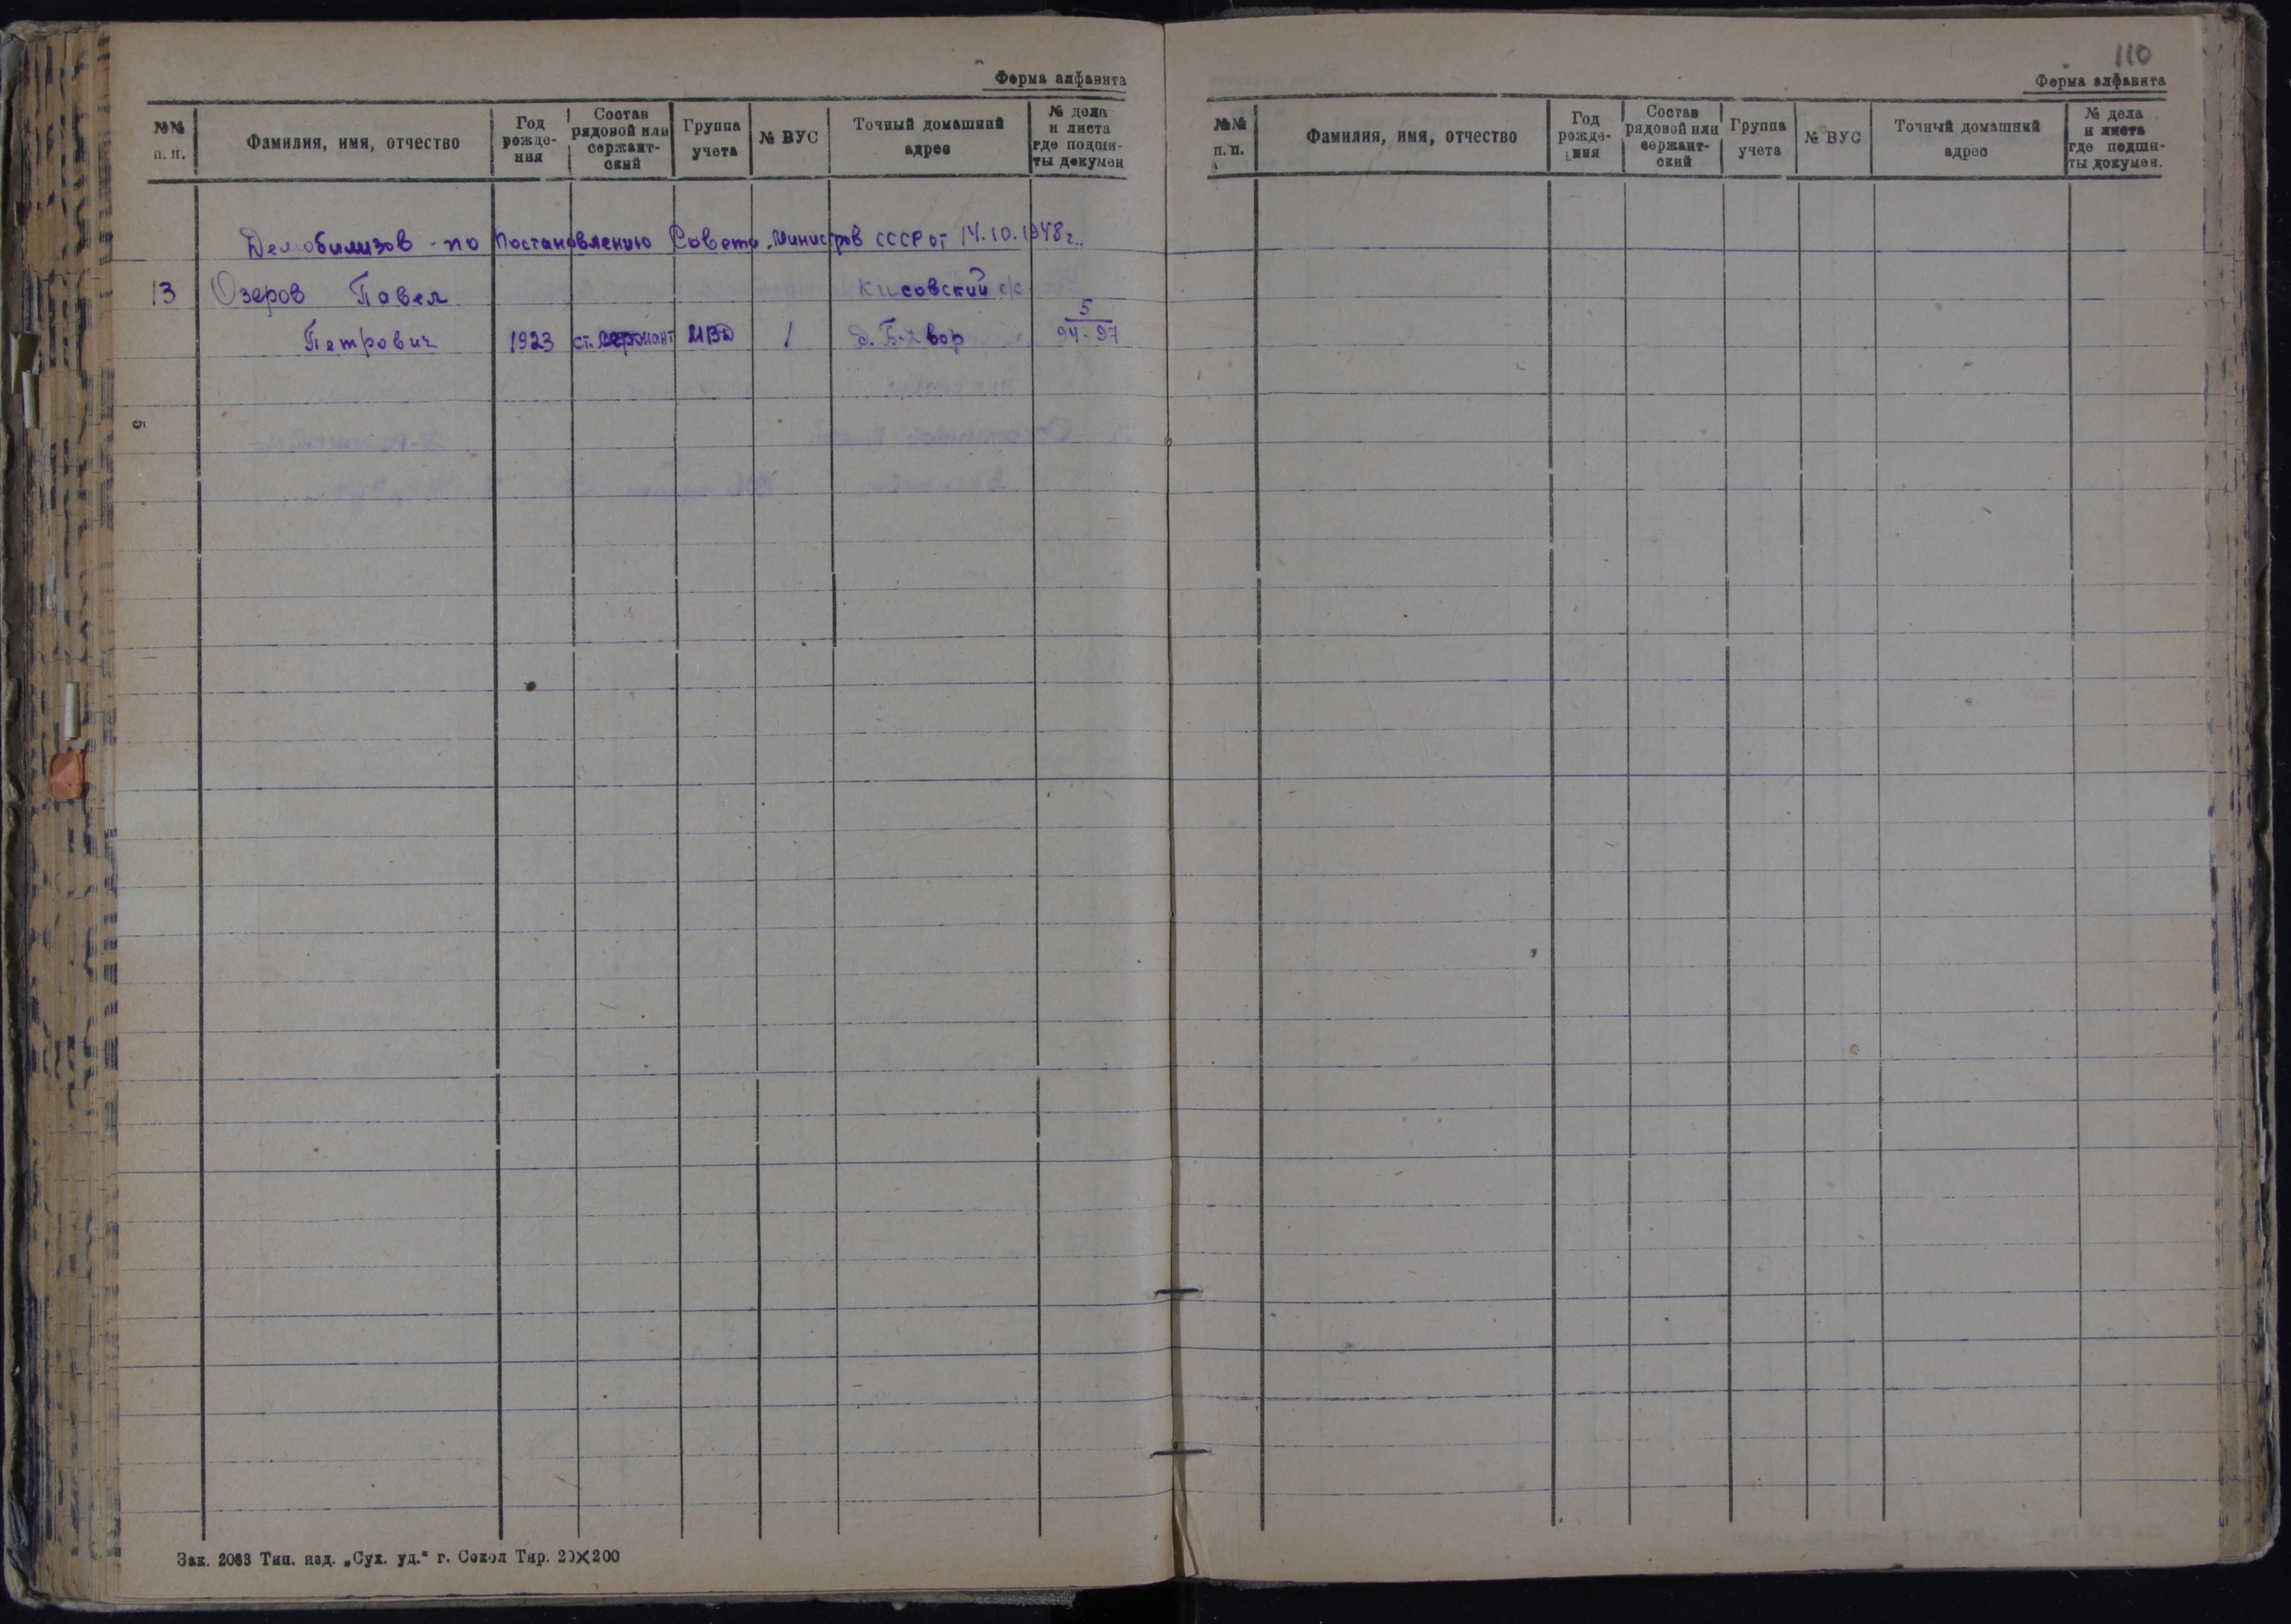 Форма алфавита
№№ п. п.
Фамилия, имя, отчество
Год рожде-ния
Состав рядовой или сержант-ский
Группа учета
№ ВУС
Точный домашний адрес
№ дела и листа где подши-ты докумен
Демобилизов - по Постановлению Совета Министров СССР от 14.10.1948 г.
13 Озеров Павел Кисовский с/с 5
Петрович 1923 ст. сержант МВД 1 д. Б-Двор 94-97
5
Зак. 2083 Тип. изд. „Сух. уд.“ г. Сокол Тир. 20×200
110
Форма алфавита
№№ п. п.
Фамилия, имя, отчество
Год рожде-ния
Состав рядовой или сержант-ский
Группа учета
№ ВУС
Точный домашний адрес
№ дела и листа где подши-ты докумен.